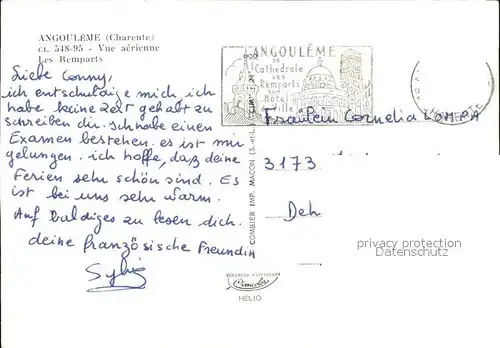 ANGOULÊME (Charente)
CL. 548-95 - Vue aérienne
Les Remparts
Liebe Conny,
ich entschuldige mich, ich
habe keine Zeit gehabt zu
schreiben dir. Ich habe einen
Examen bestehen. es ist mir
gelungen. ich hoffe, daß deine
Ferien sehr schön sind. Es
ist bei uns sehr warm.
Auf baldiges zu lesen dich.
deine französische Freundin
Sylvie
ANGOULÊME
sa
Cathédrale
ses
Remparts
son
Hôtel
de Ville
CHARENTE
COMBIER IMP. MACON (S.-et-L.)
Fräulein Cornelia
3173
Deh
privacy protection
Datenschutz
COULEURS NATURELLES
Cimcolor
HELIO